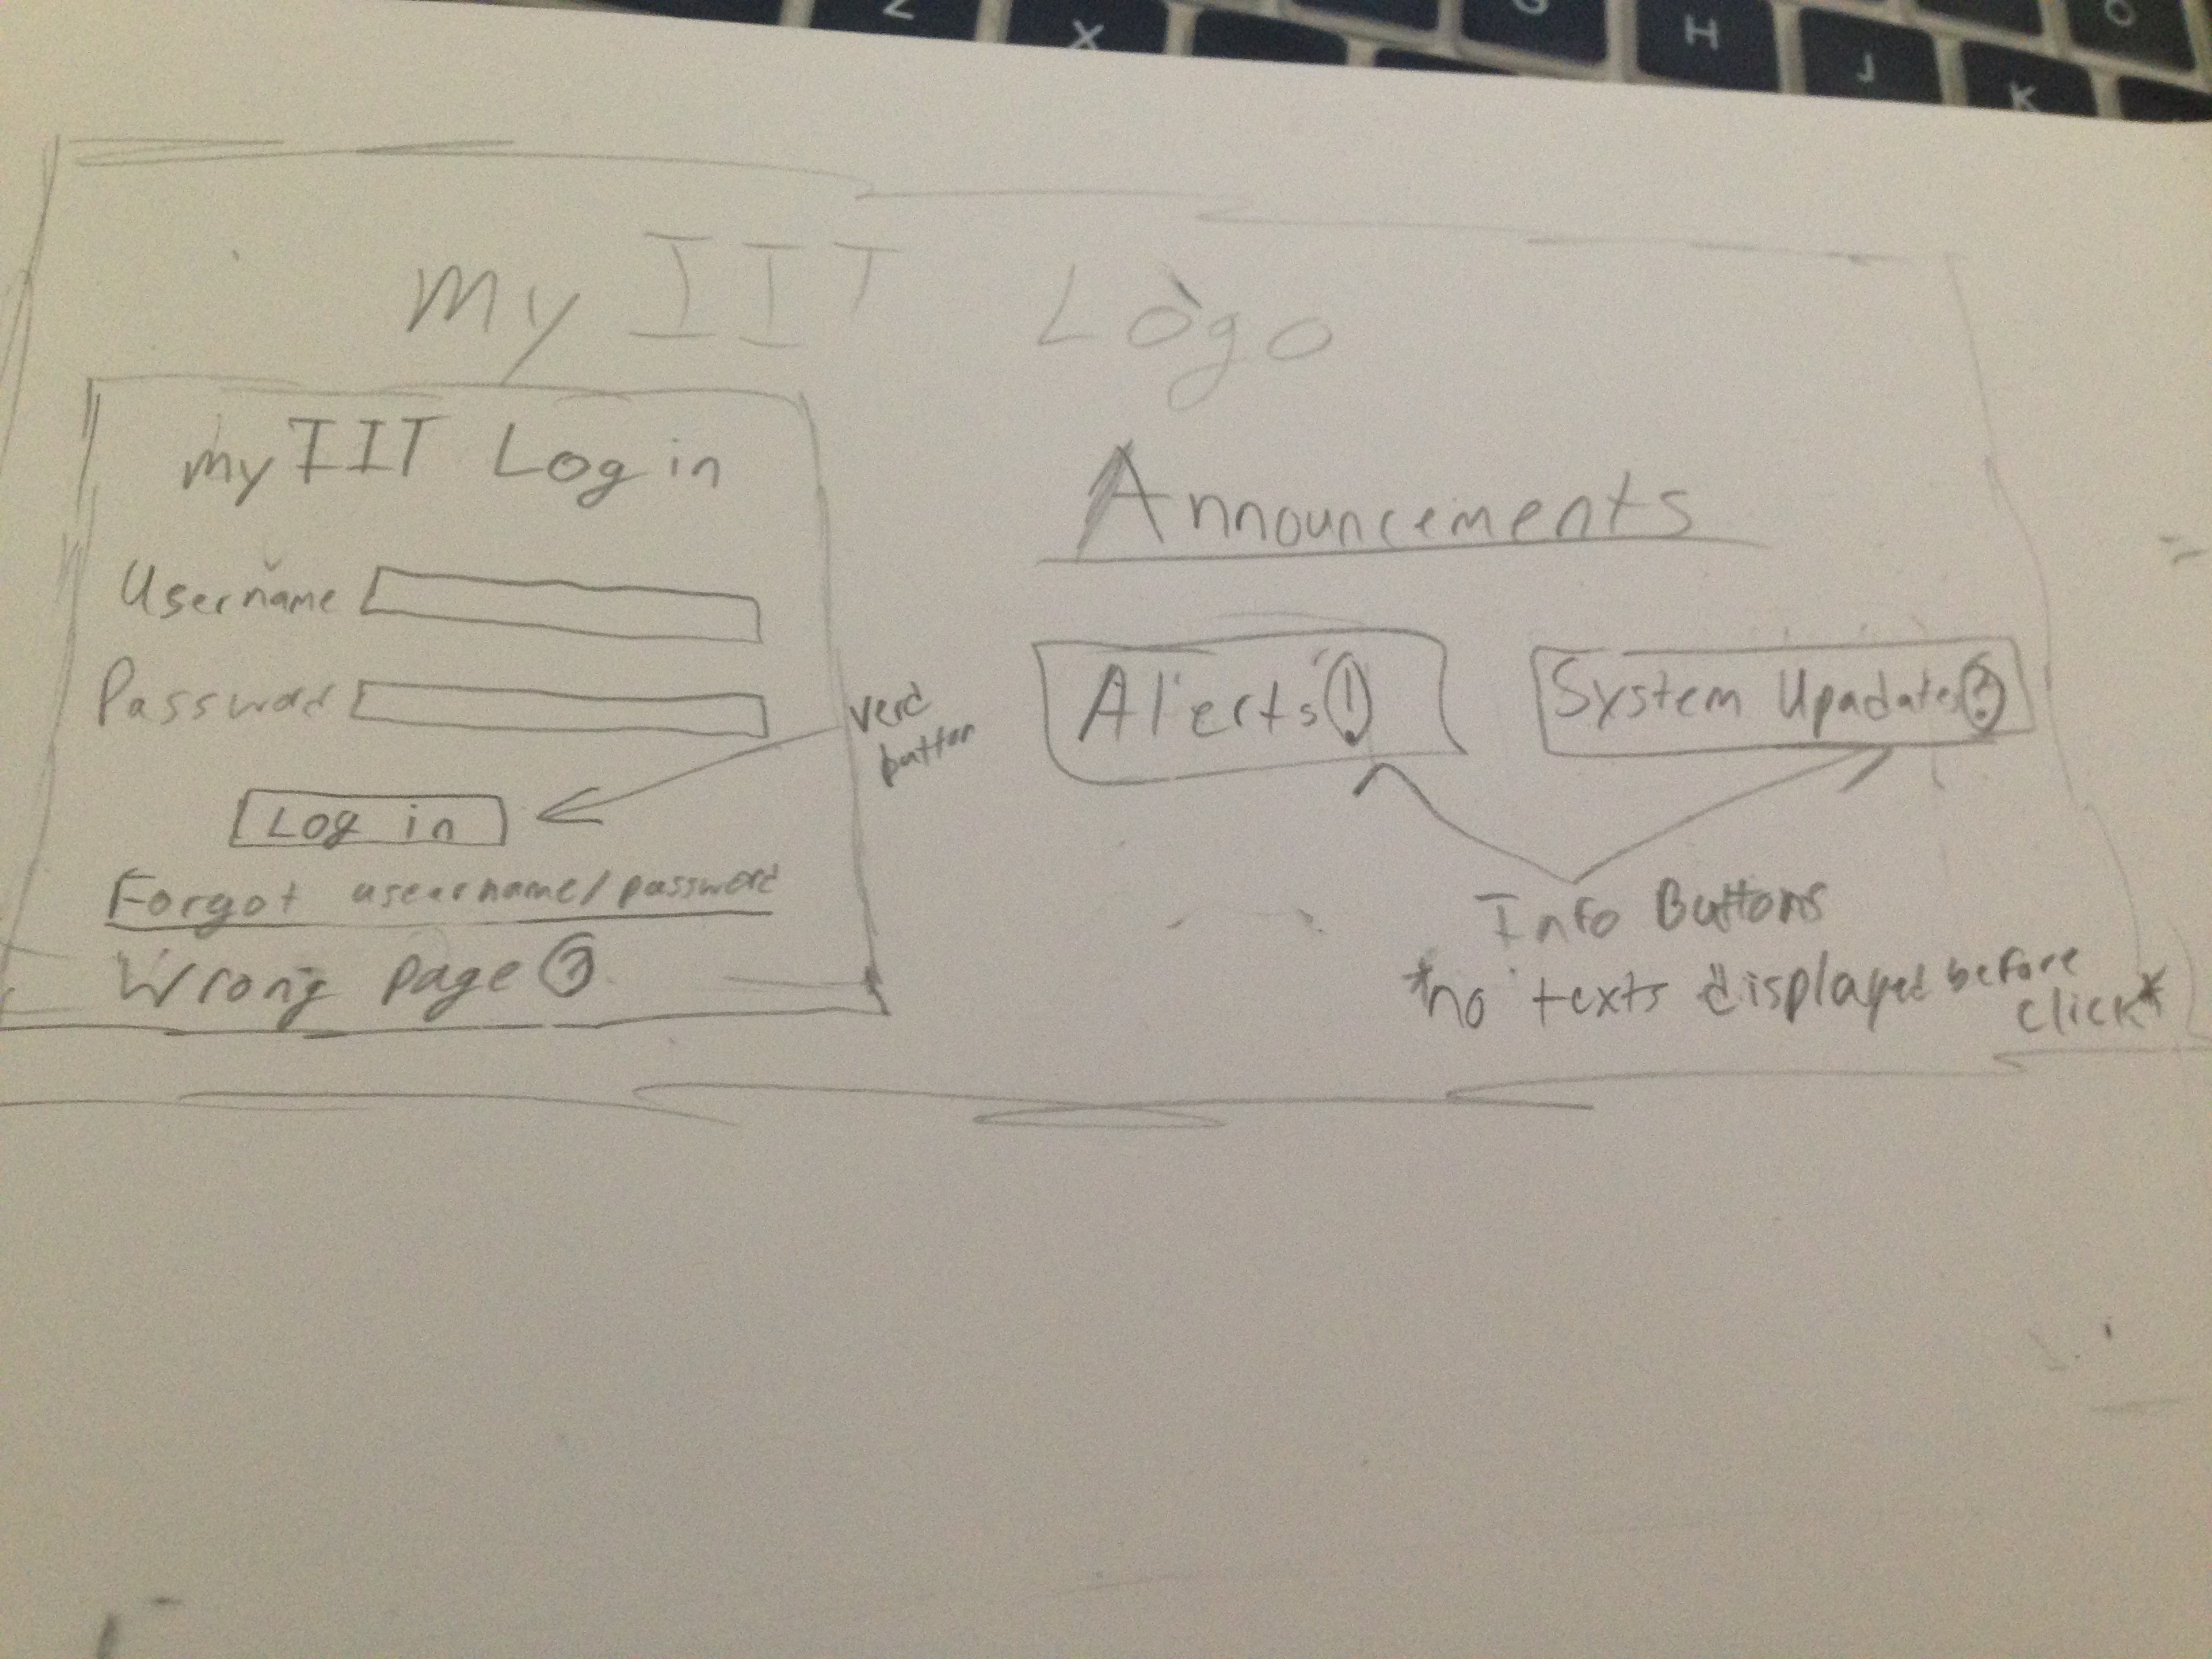 My IIT Logo
My IIT Log in
Username
Password
Log in
Forgot username/password
Wrong page?
button
Announcements
Alierts!
System Upadates?
Info Buttons
*no texts displayed before
click*
Z
X
H
J
K